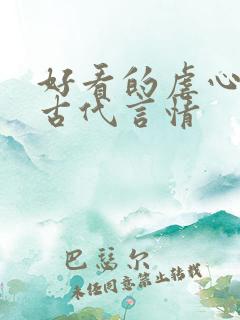 好看的虐心
古代言情
巴瑟尔
未经同意禁止转载